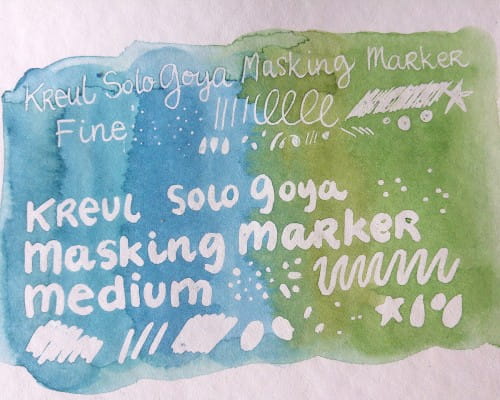 Kreul Solo Goya Masking Marker
Fine
Kreul Solo Goya
Masking Marker
medium